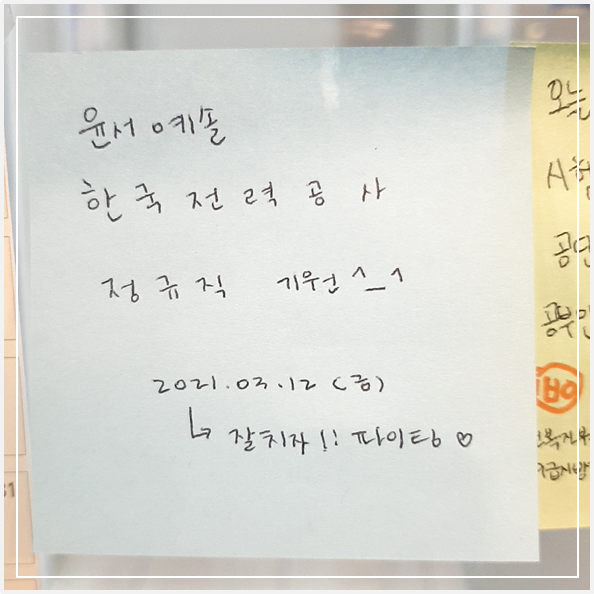 윤서 예솔
한국전력공사
정규직 기원 ^_^
2021.03.12 (금)
↳ 잘치자!! 파이팅 ♡
오늘
시험
공연
공부